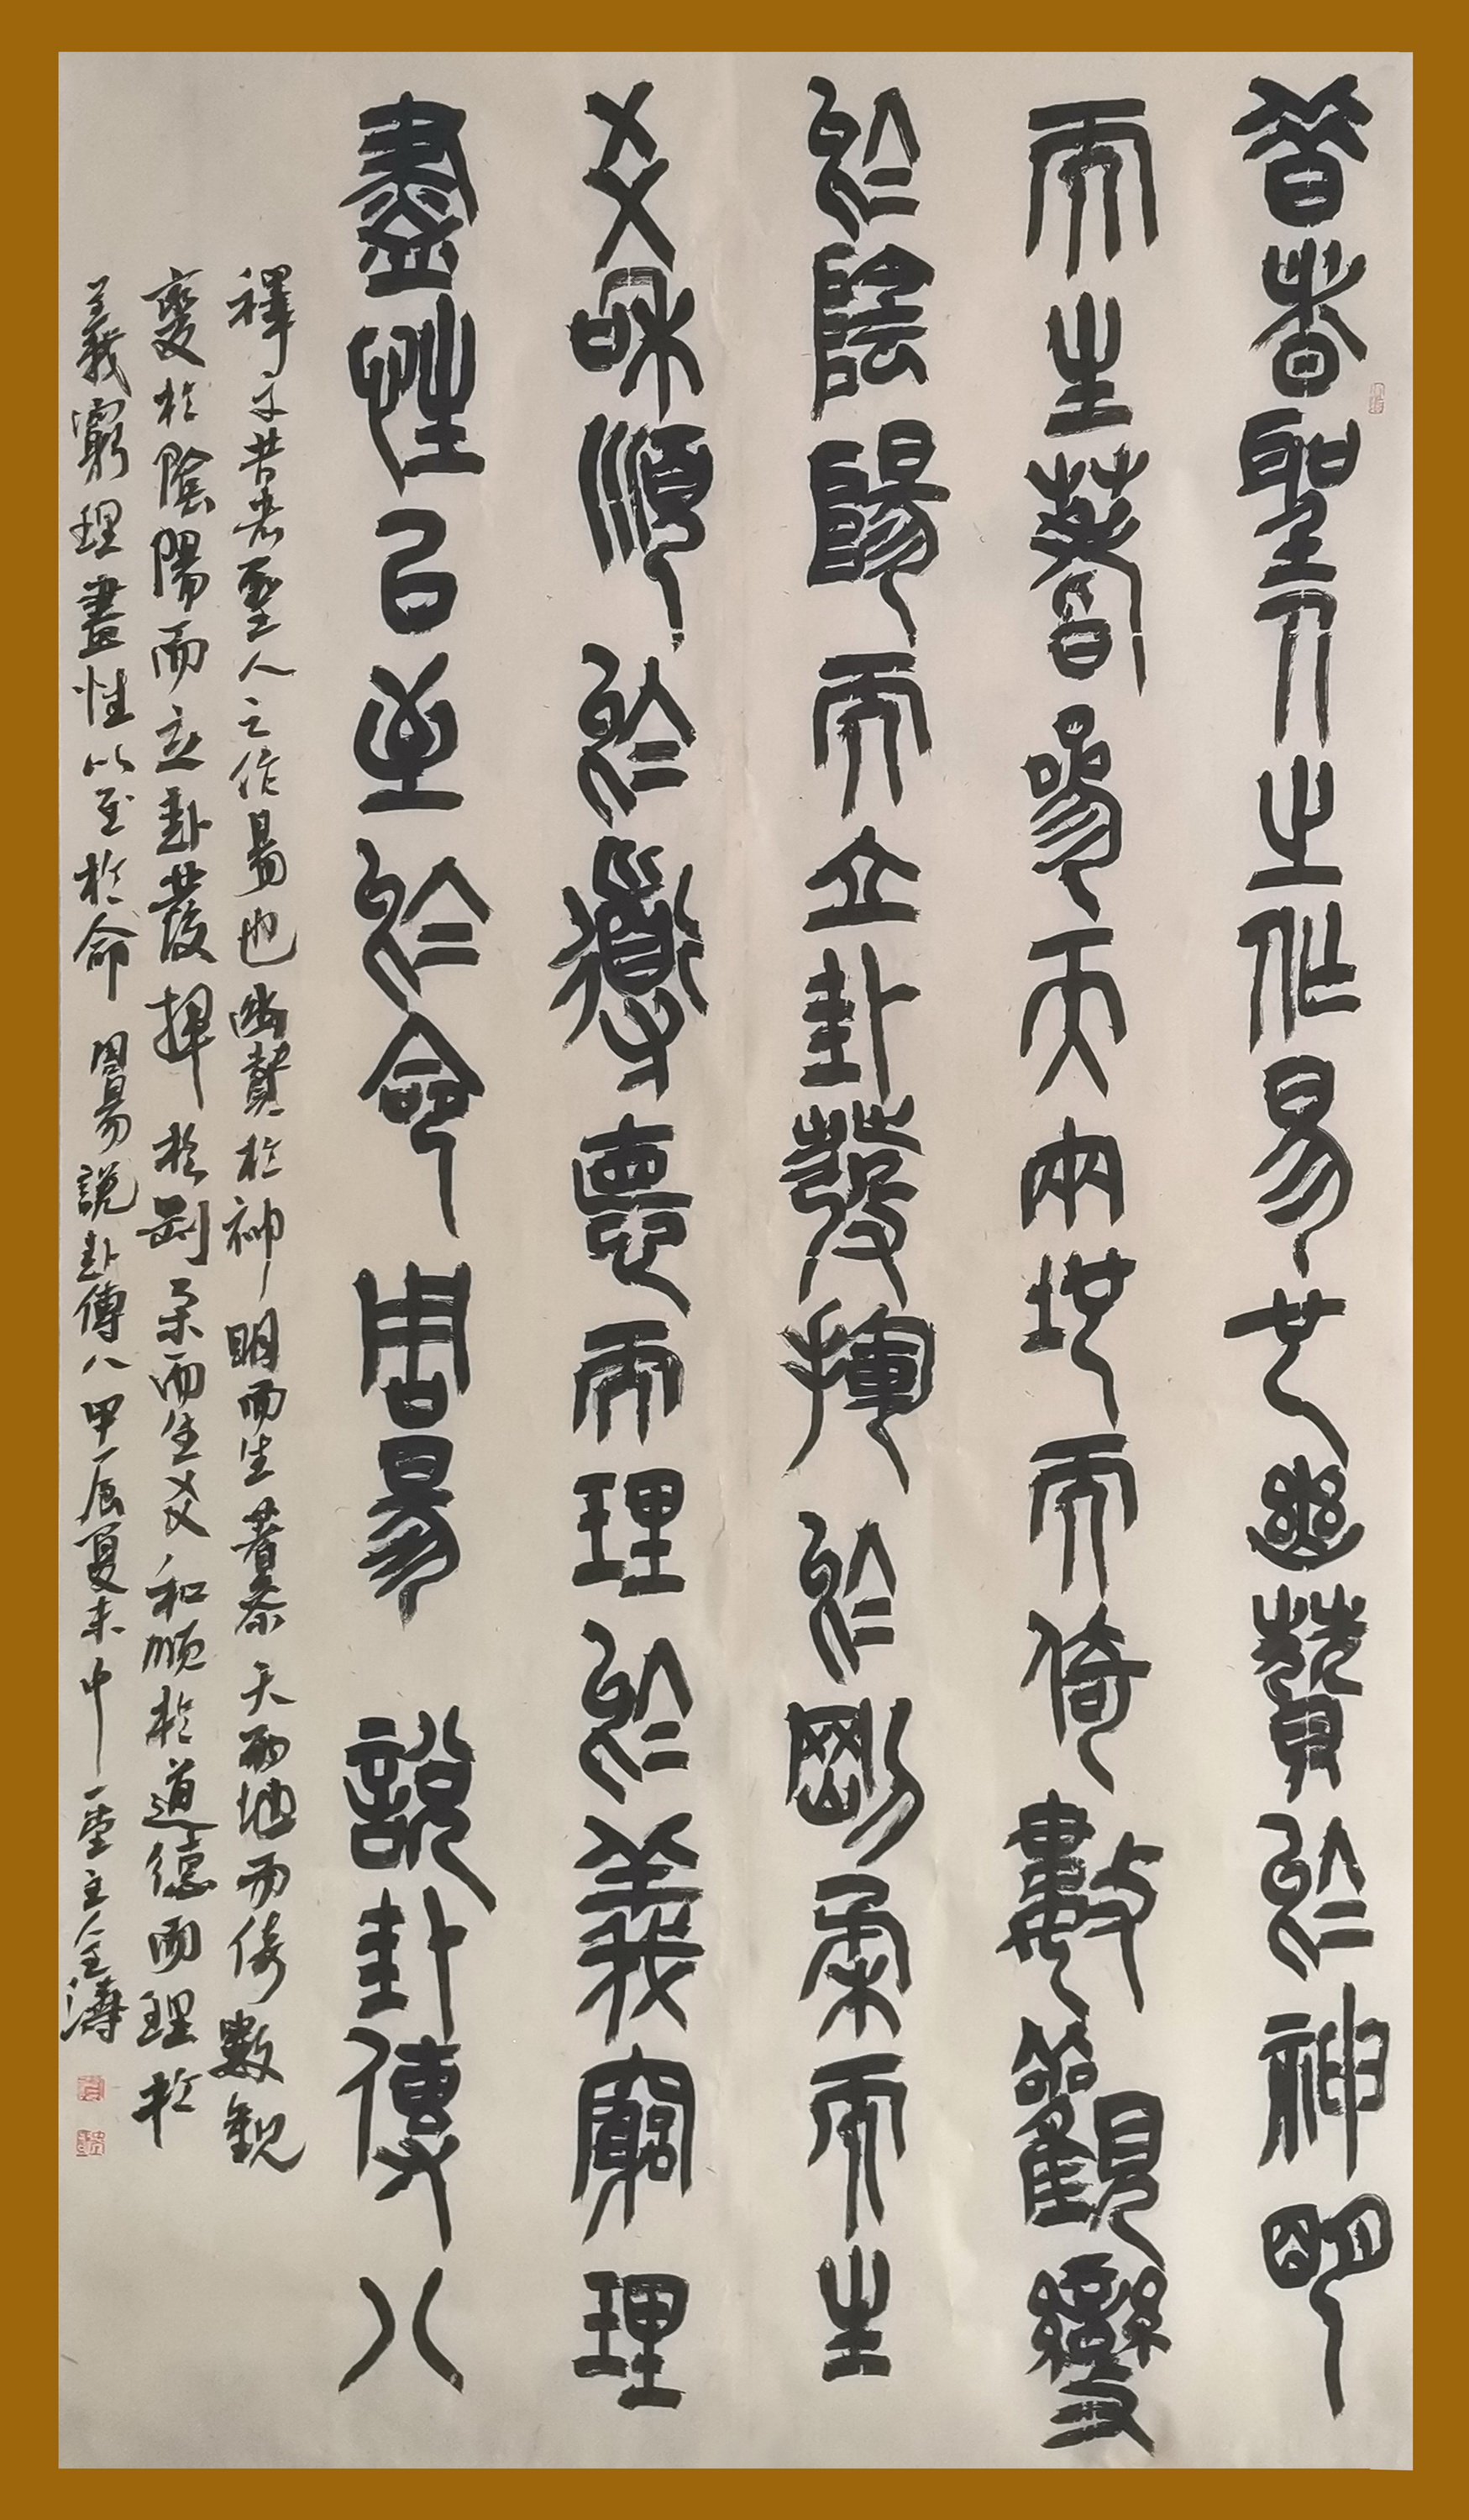 昔者聖人之作易也幽贊於神明
而生蓍參天兩地而倚數觀變
於陰陽而立卦發揮於剛柔而生
爻和順於道德而理於義窮理
盡性以至於命周易 說卦傳八
釋文昔者聖人之作易也幽贊於神明而生蓍參天兩地而倚數觀
變於陰陽而立卦發揮於剛柔而生爻和順於道德而理於
義窮理盡性以至於命 周易說卦傳八甲辰夏末中一堂主全濤